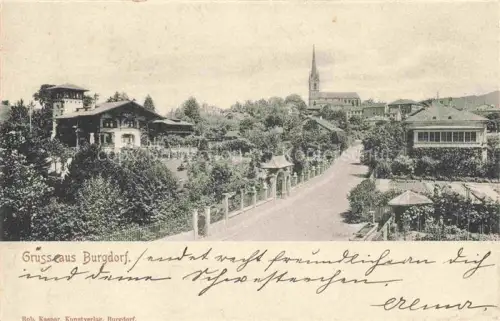 Gruss aus Burgdorf. sendet recht freundlichen dich
und deine Schwesterchen.
Alma.
Rob. Kaeser, Kunstverlag, Burgdorf.